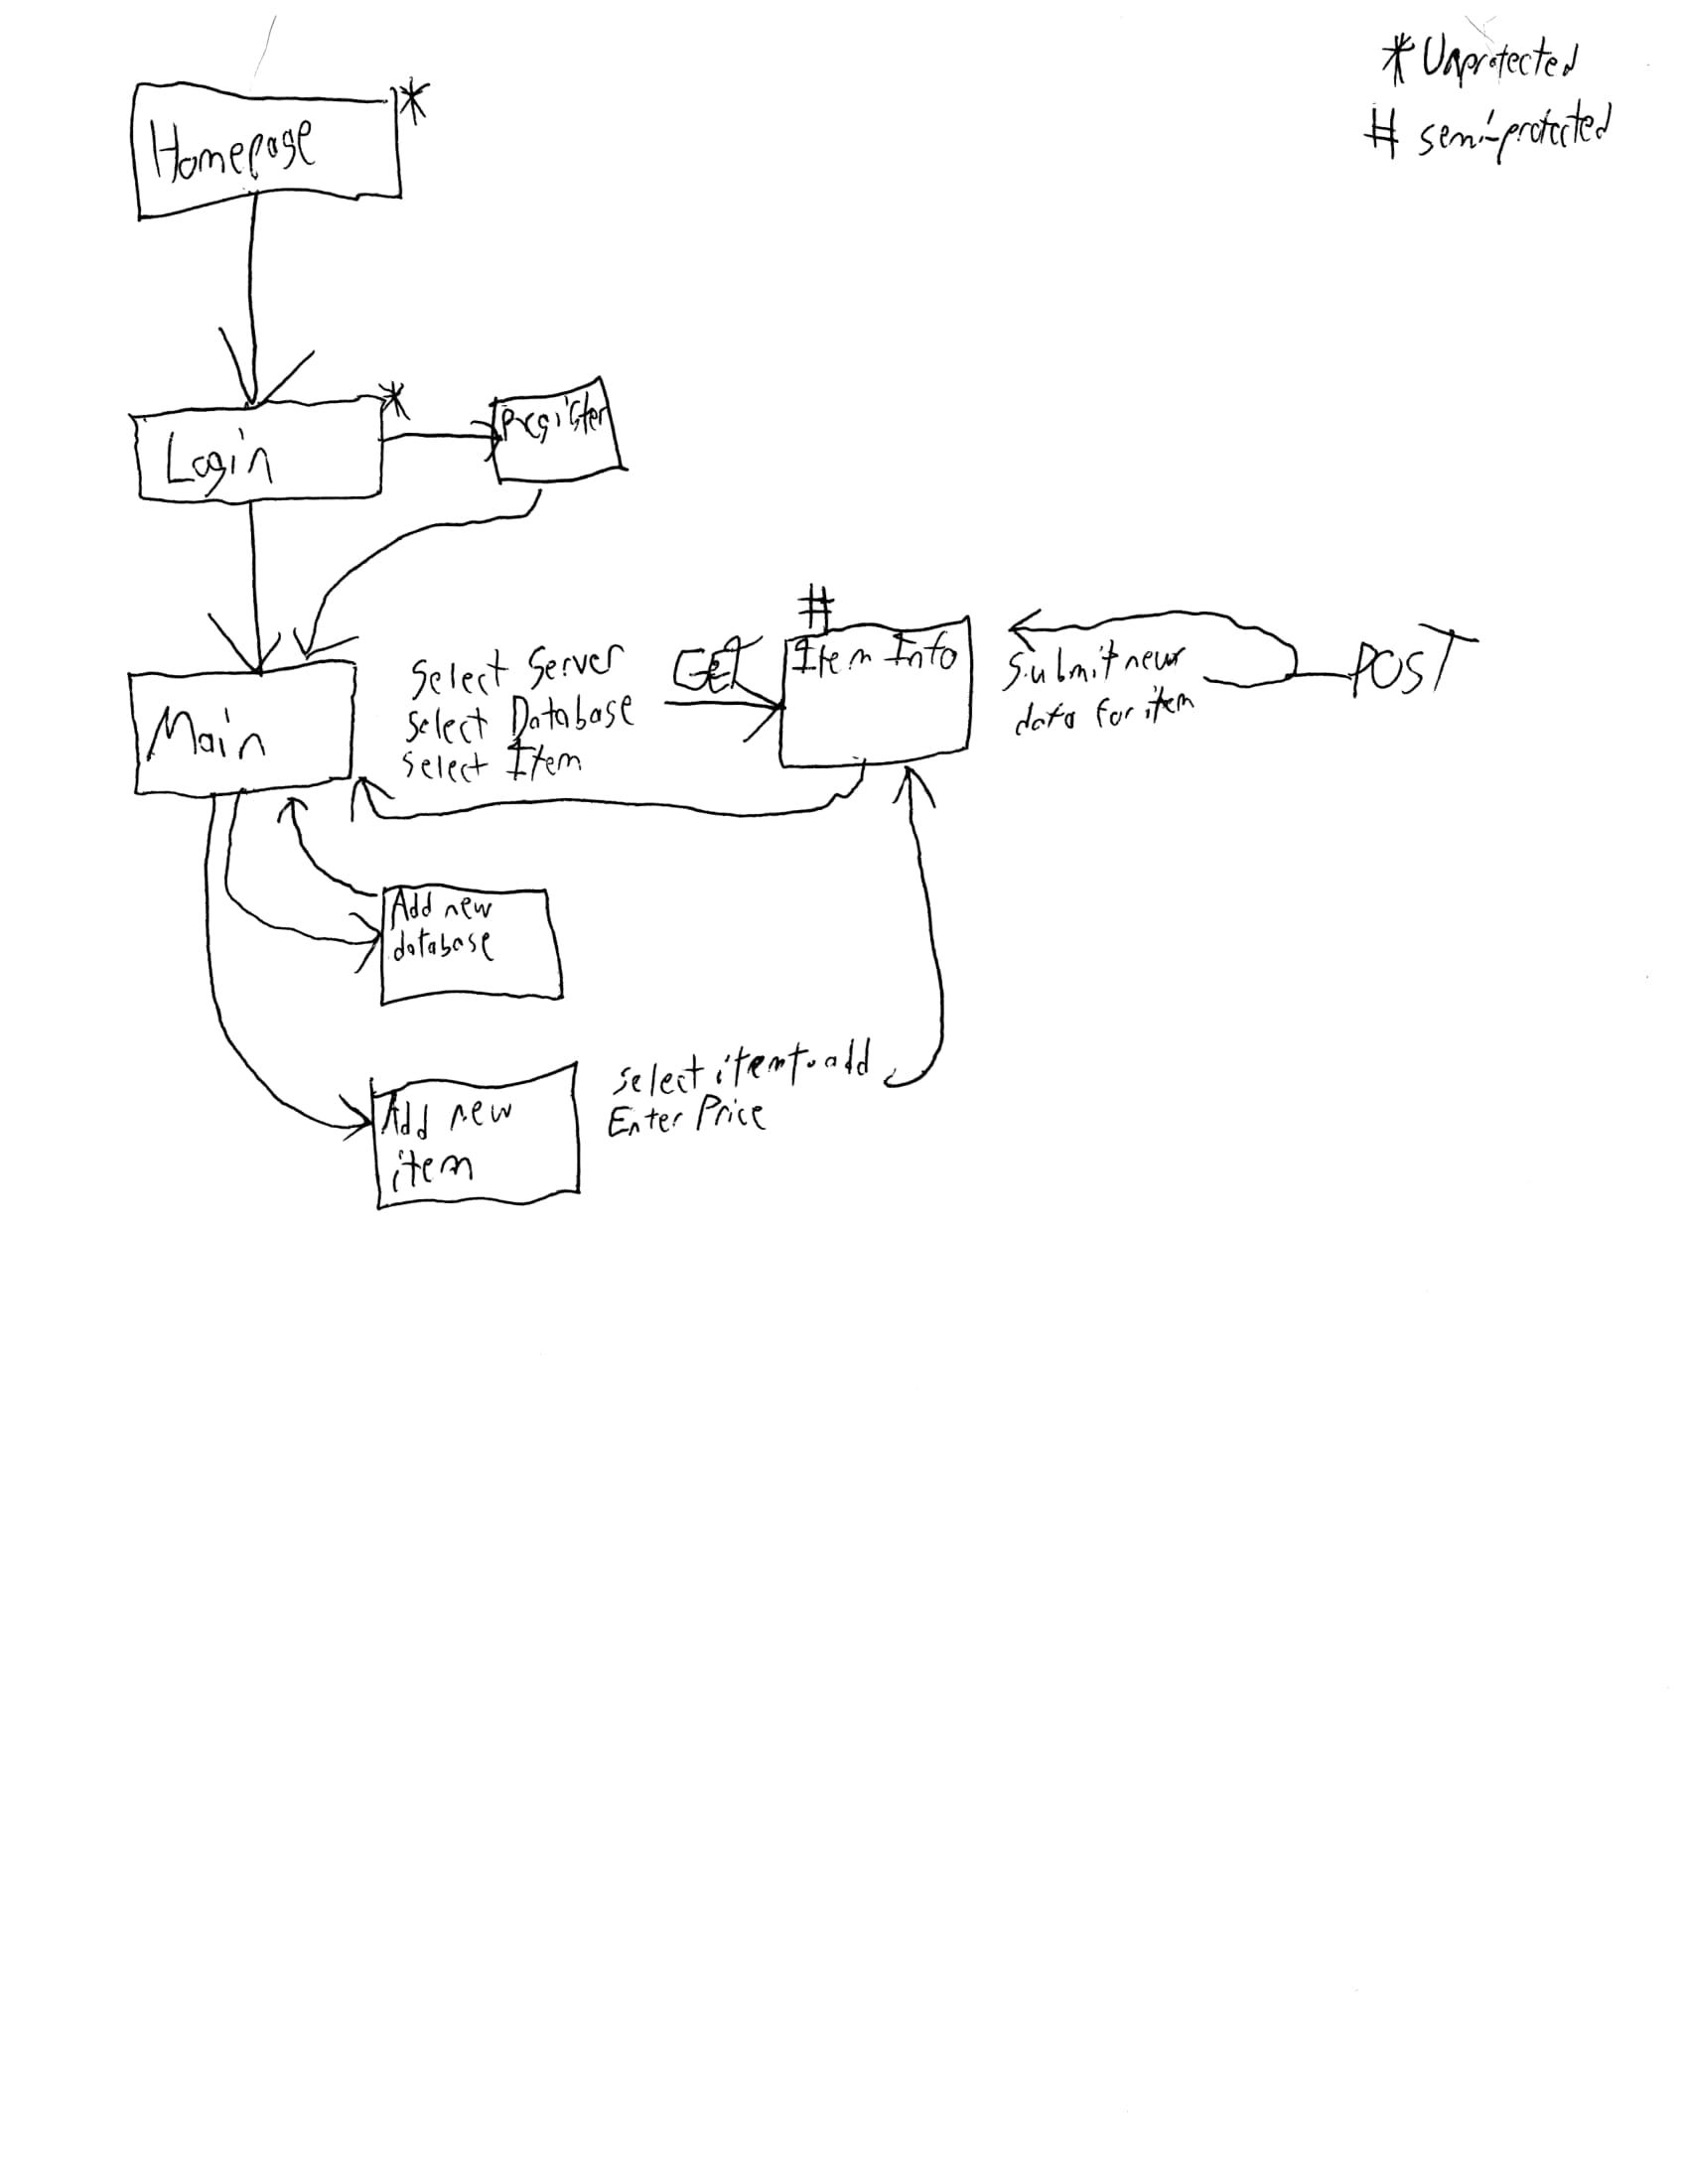 * Unprotected
# semi-protected
Homepage *
Login *
Register
#
Main
Select Server
Select Database
Select Item
GET
Item Info
Submit new
data for item
POST
Add new
database
Select item to add
Enter Price
Add new
item